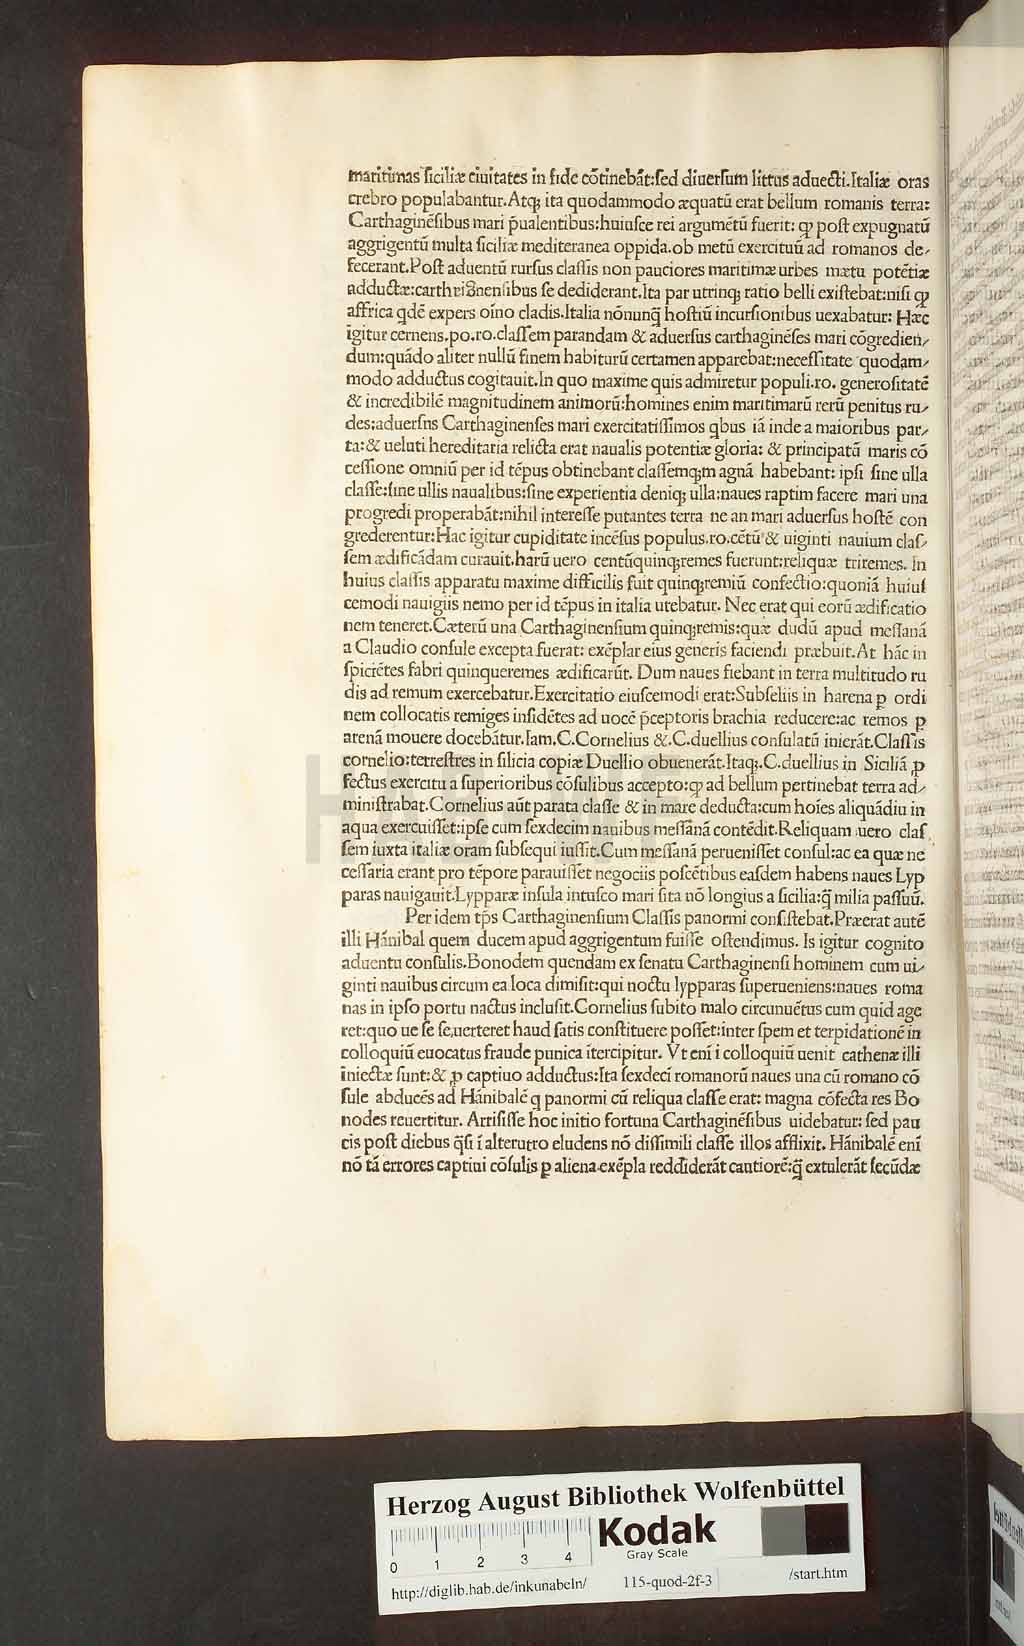 maritimas ſiciliæ ciuitates in fide cōtinebāt:ſed diuerſum littus aduecti.Italiæ oras
crebro populabantur.Atqꝫ ita quodammodo æquatū erat bellum romanis terra:
Carthaginēſibus mari p̄ualentibus:huiuſce rei argumētū fuerit: ꝙ poſt expugnatū
aggrigentū multa ſiciliæ mediteranea oppida.ob metū exercituū ad romanos de⸗
fecerant.Poſt aduentū rurſus claſſis non pauciores maritimæ urbes mætu potētiæ
adductæ:carthaginenſibus ſe dediderant.Ita par utrinqꝫ ratio belli exiſtebat:niſi ꝙ
affrica qdē expers oīno cladis.Italia nōnunq̄ hoſtiū incurſionibus uexabatur: Hæc
igitur cernens.po.ro.claſſem parandam & aduerſus carthaginēſes mari cōgredien⸗
dum:quādo aliter nullū finem habiturū certamen apparebat:neceſſitate quodam⸗
modo adductus cogitauit.In quo maxime quis admiretur populi.ro. generoſitatē
& incredibilē magnitudinem animorū:homines enim maritimarū rerū penitus ru⸗
des:aduerſns Carthaginenſes mari exercitatiſſimos qbus iā inde a maioribus par⸗
ta:& ueluti hereditaria relicta erat naualis potentiæ gloria: & principatū maris cō
ceſſione omniū per id tēpus obtinebant claſſemqꝫm agnā habebant: ipſi ſine ulla
claſſe:ſine ullis naualibus:ſine experientia deniqꝫ ulla:naues raptim facere mari una
progredi properabāt:nihil intereſſe putantes terra ne an mari aduerſus hoſtē con
grederentur:Hac igitur cupiditate incēſus populus.ro.cētū & uiginti nauium claſ⸗
ſem ædificādam curauit.harū uero centūquinqꝫremes fuerunt:reliquæ triremes. In
huius claſſis apparatu maxime difficilis fuit quinqꝫremiū confectio:quoniā huiuſ
cemodi nauigiis nemo per id tēpus in italia utebatur. Nec erat qui eorū ædificatio
nem teneret.Cæterū una Carthaginenſium quinqꝫremis:quæ dudū apud meſſanā
a Claudio conſule excepta fuerat: exēplar eius generis faciendi præbuit.At hāc in
ſpiciētes fabri quinqueremes ædificarūt. Dum naues fiebant in terra multitudo ru
dis ad remum exercebatur.Exercitatio eiuſcemodi erat:Subſeliis in harena ꝑ ordi
nem collocatis remiges inſidētes ad uocē p̄ceptoris brachia reducere:ac remos ꝑ
arenā mouere docebātur.Iam.C.Cornelius &.C.duellius conſulatū inierāt.Claſſis
cornelio:terreſtres in ſilicia copiæ Duellio obuenerāt.Itaqꝫ.C.duellius in Siciliā ꝓ
fectus exercitu a ſuperioribus cōſulibus accepto:ꝙ ad bellum pertinebat terra ad⸗
miniſtrabat.Cornelius aūt parata claſſe & in mare deducta:cum hoīes aliquādiu in
aqua exercuiſſet:ipſe cum ſexdecim nauibus meſſanā contēdit.Reliquam uero claſ
ſem iuxta italiæ oram ſubſequi iuſſit.Cum meſſanā perueniſſet conſul:ac ea quæ ne
ceſſaria erant pro tēpore parauiſſet negociis poſcētibus eaſdem habens naues Lyp
paras nauigauit.Lypparæ inſula intuſco mari ſita nō longius a ſicilia:q̄ milia paſſuū.
Per idem tp̄s Carthaginenſium Claſſis panormi conſiſtebat.Præerat autē
illi Hānibal quem ducem apud aggrigentum fuiſſe oſtendimus. Is igitur cognito
aduentu conſulis.Bonodem quendam ex ſenatu Carthaginenſi hominem cum ui⸗
ginti nauibus circum ea loca dimiſit:qui noctu lypparas ſuperueniens:naues roma
nas in ipſo portu nactus incluſit.Cornelius ſubito malo circunuētus cum quid age
ret:quo ue ſe ſe,uerteret haud ſatis conſtituere poſſet:inter ſpem et terpidationē in
colloquiū euocatus fraude punica ītercipitur. Vt enī ī colloquiū uenit cathenæ illi
īniectæ ſunt:& ꝓ captiuo adductus:Ita ſexdecī romanorū naues una cū romano cō
ſule abducēs ad Hānibalē q panormi cū reliqua claſſe erat: magna cōfecta res Bo
nodes reuertitur. Arriſiſſe hoc initio fortuna Carthaginēſibus uidebatur: ſed pau
cis poſt diebus q̄ſi ī alterutro eludens nō diſſimili claſſe illos afflixit. Hānibalē enī
nō tā errores captiui cōſulis ꝑ aliena exēpla reddiderāt cautiorē:q̄ extulerāt ſecūdæ
HAB WF
Herzog August Bibliothek Wolfenbüttel
0 1 2 3 4
Kodak
Gray Scale
http://diglib.hab.de/inkunabeln/ 115-quod-2f-3 /start.htm